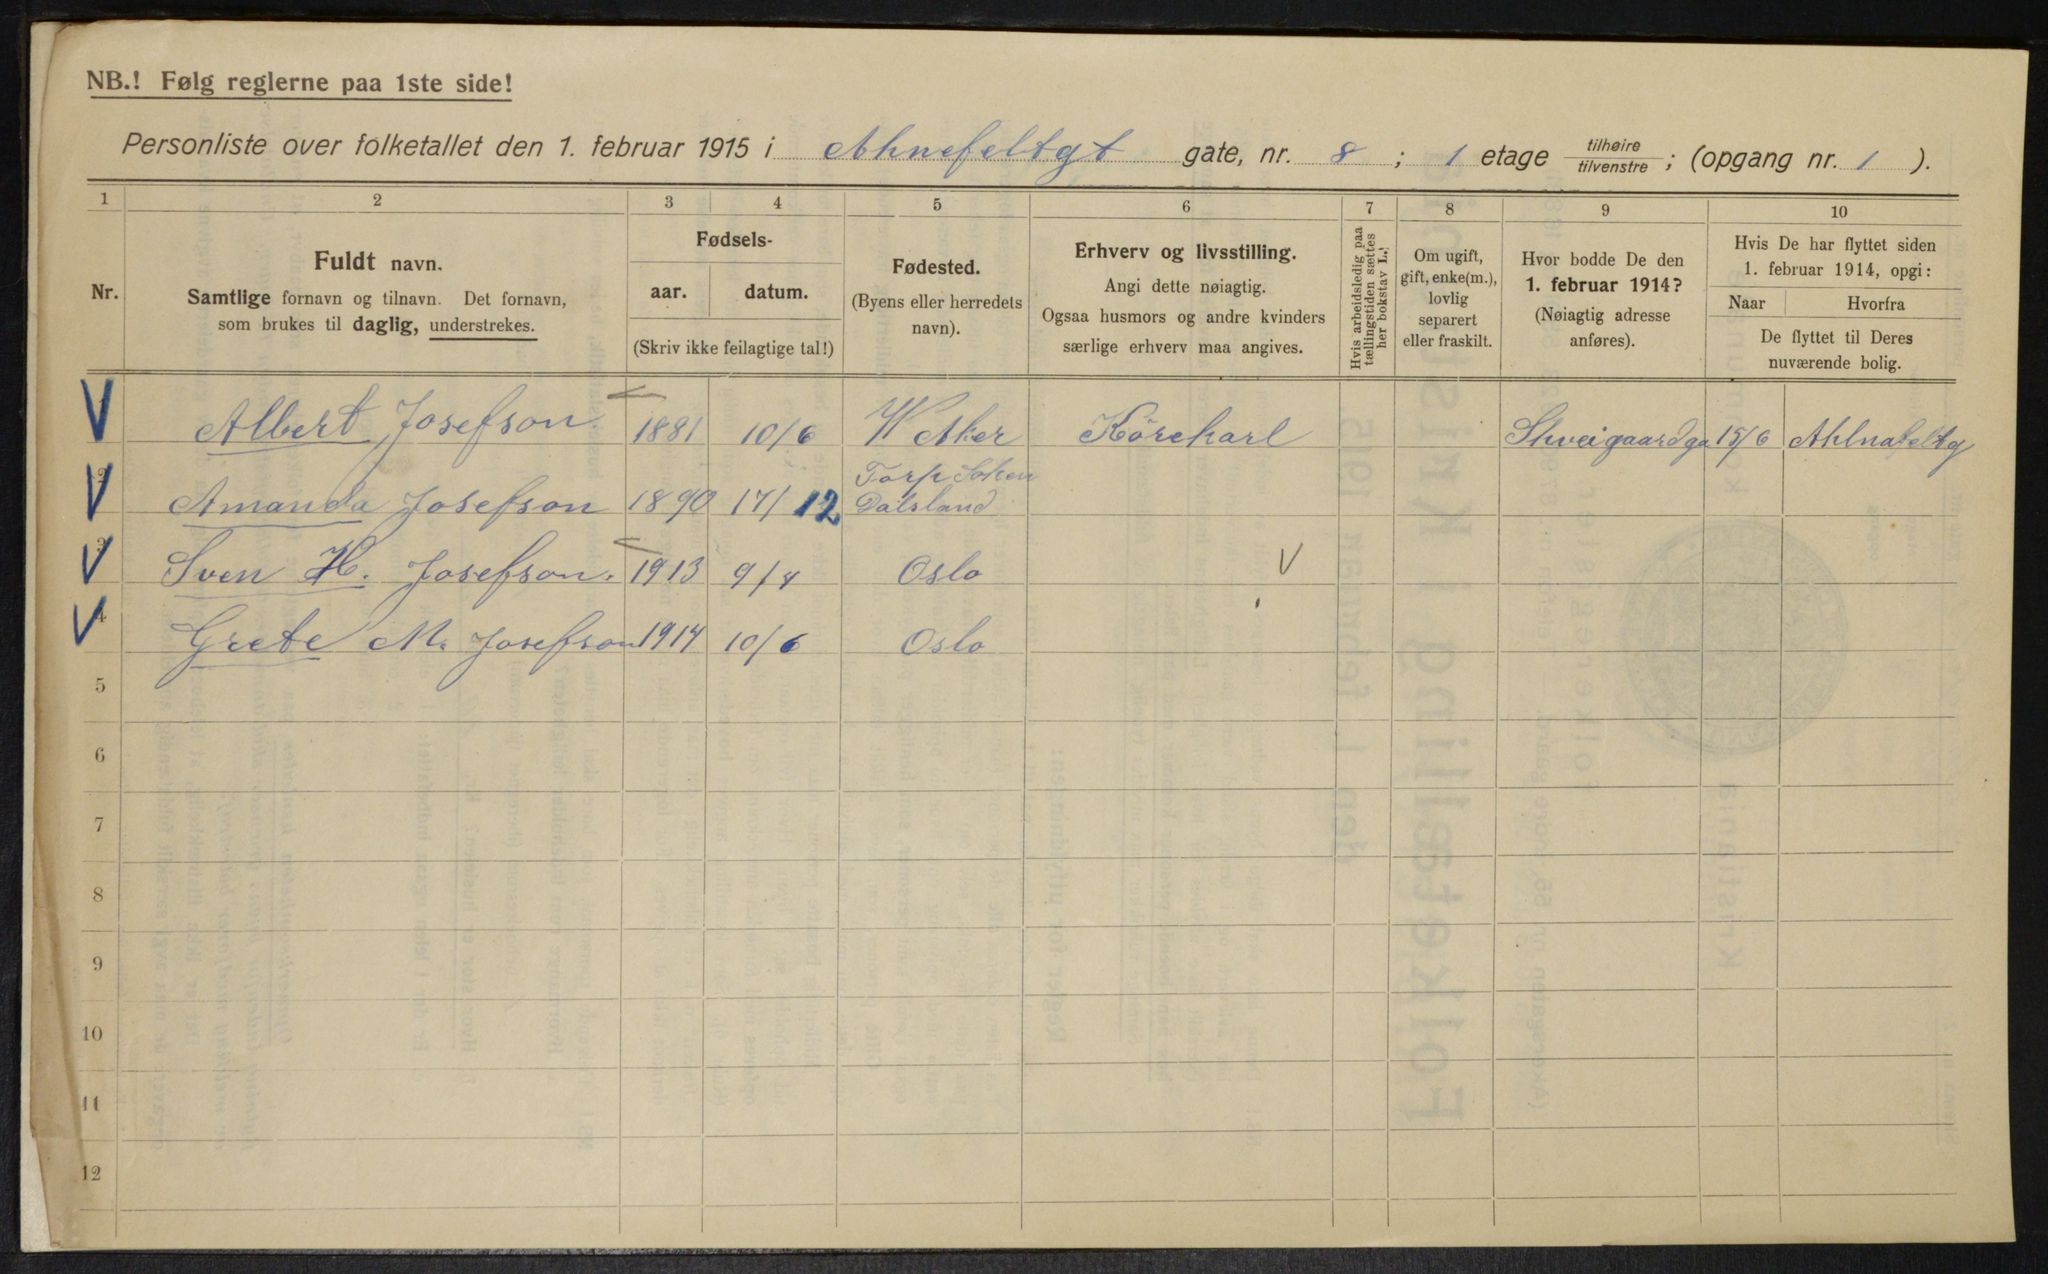 NB.! Følg reglerne paa 1ste side!
Personliste over folketallet den 1. februar 1915 i Ahnefeltgt gate, nr. 8 ; 1 etage tilhøire/tilvenstre ; (opgang nr. 1 ).
1 2 3 4 5 6 7 8 9 10
Nr.
Fuldt navn.
Samtlige fornavn og tilnavn. Det fornavn,
som brukes til daglig, understrekes.
Fødsels-
aar. datum.
(Skriv ikke feilagtige tal!)
Fødested.
(Byens eller herredets
navn).
Erhverv og livsstilling.
Angi dette nøiagtig.
Ogsaa husmors og andre kvinders
særlige erhverv maa angives.
Hvis arbeidsledig paa
tællingstiden sættes
her bokstav L.
Om ugift,
gift, enke(m.),
lovlig
separert
eller fraskilt.
Hvor bodde De den
1. februar 1914?
(Nøiagtig adresse
anføres).
Hvis De har flyttet siden
1. februar 1914, opgi:
Naar Hvorfra
De flyttet til Deres
nuværende bolig.
Albert Josefson 1881 10/6 W Aker Körekarl Skveigaardga 15/6 Ahlnafeltg
2 Amanda Josefson 1890 17/12 Torp Soken
Dalsland
3 Sven H. Josefson. 1913 9/4 Oslo V
4 Grete M. Josefson 1914 10/6 Oslo
5
6
7
8
9
10
11
12